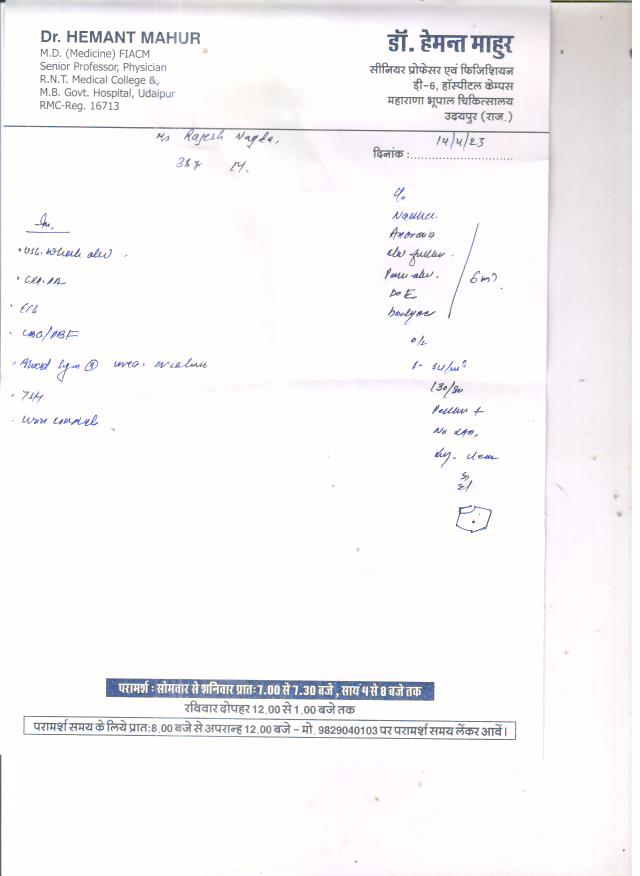 Dr. HEMANT MAHUR
M.D. (Medicine) FIACM
Senior Professor, Physician
R.N.T. Medical College &,
M.B. Govt. Hospital, Udaipur
RMC-Reg. 16713
डॉ. हेमन्त माहुर
सीनियर प्रोफेसर एवं फिजिशियन
ड़ी-6, हॉस्पीटल केम्पस
महाराणा भूपाल चिकित्सालय
उदयपुर (राज.)
Rajesh Nagda.
दिनांक : 14/4/23
38y M.
c/o
Nausea
Anorexia
abd. fullness
Pain abd.
DOE
6 m
o/e
130/80
Pallor +
No LAN.
clear
Inv.
• USG. Whole abd
• CXR-PA
• ECG
• CBC/PBF
• Blood Sugar (R) urea creatinine
• TSH
परामर्श : सोमवार से शनिवार प्रातः 7.00 से 7.30 बजे , सायं 4 से 8 बजे तक
रविवार दोपहर 12.00 से 1.00 बजे तक
परामर्श समय के लिये प्रातः 8.00 बजे से अपरान्ह 12.00 बजे – मो. 9829040103 पर परामर्श समय लेंकर आवें।